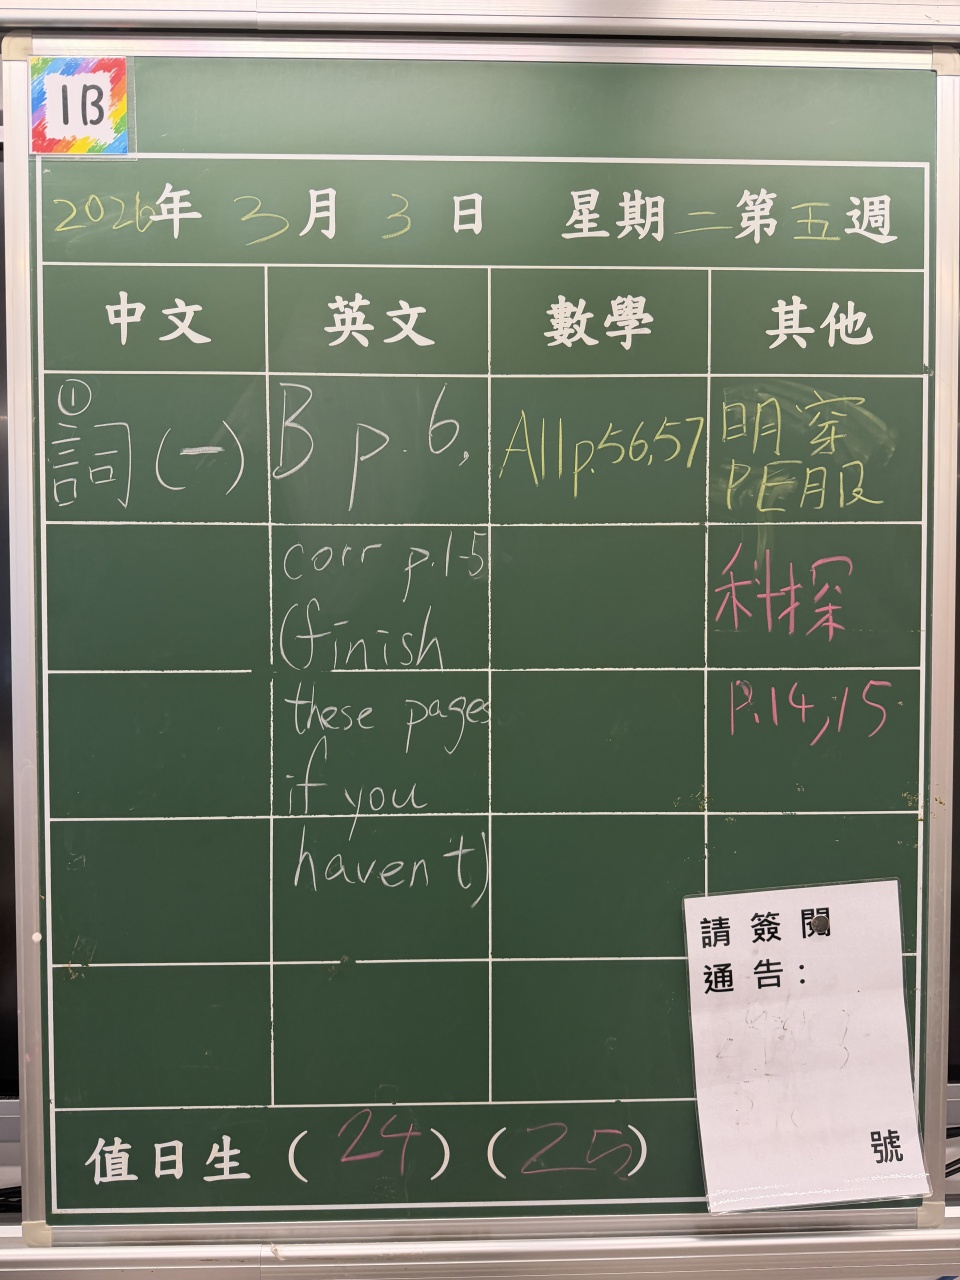 1B
2026年 3月 3日 星期二第五週
中文 英文 數學 其他
①
詞(一)
B p.6,
corr p.1-5
(finish
these pages
if you
haven't)
All p.56,57
明穿
PE服
科探
P.14,15
請簽閱
通告：
號
值日生(24)(25)